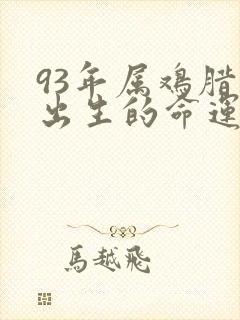 93年属鸡腊
出生的命运
馬越飛